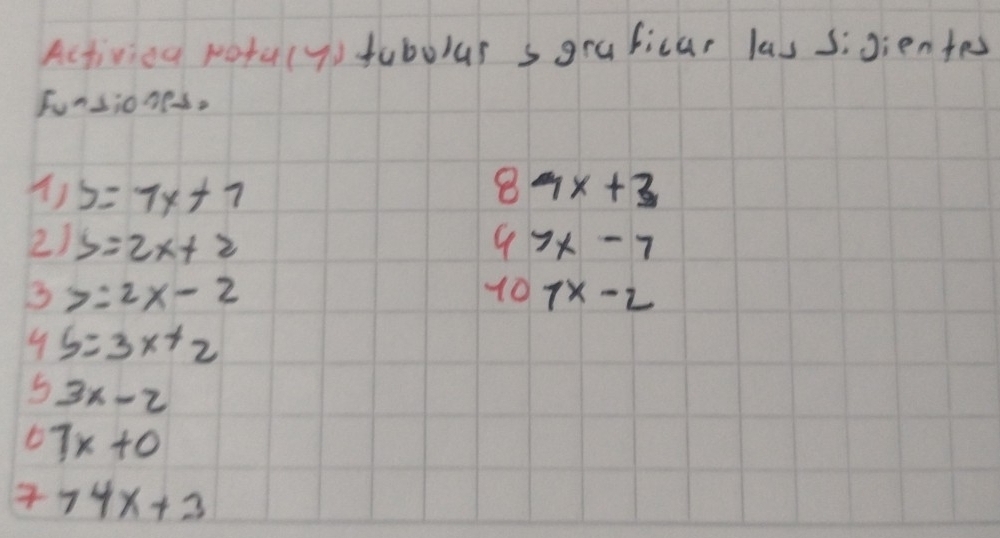 Activica Nota(1) tubular y graficar las sigientes
funsiones.
1) y= 1x+1
2) y=2x+2
3 y=2x-2
4 y=3x+2
5 3x-2
6 1x +0
7 14x+3
8 1x +3
9 1x -1
10 1x -2